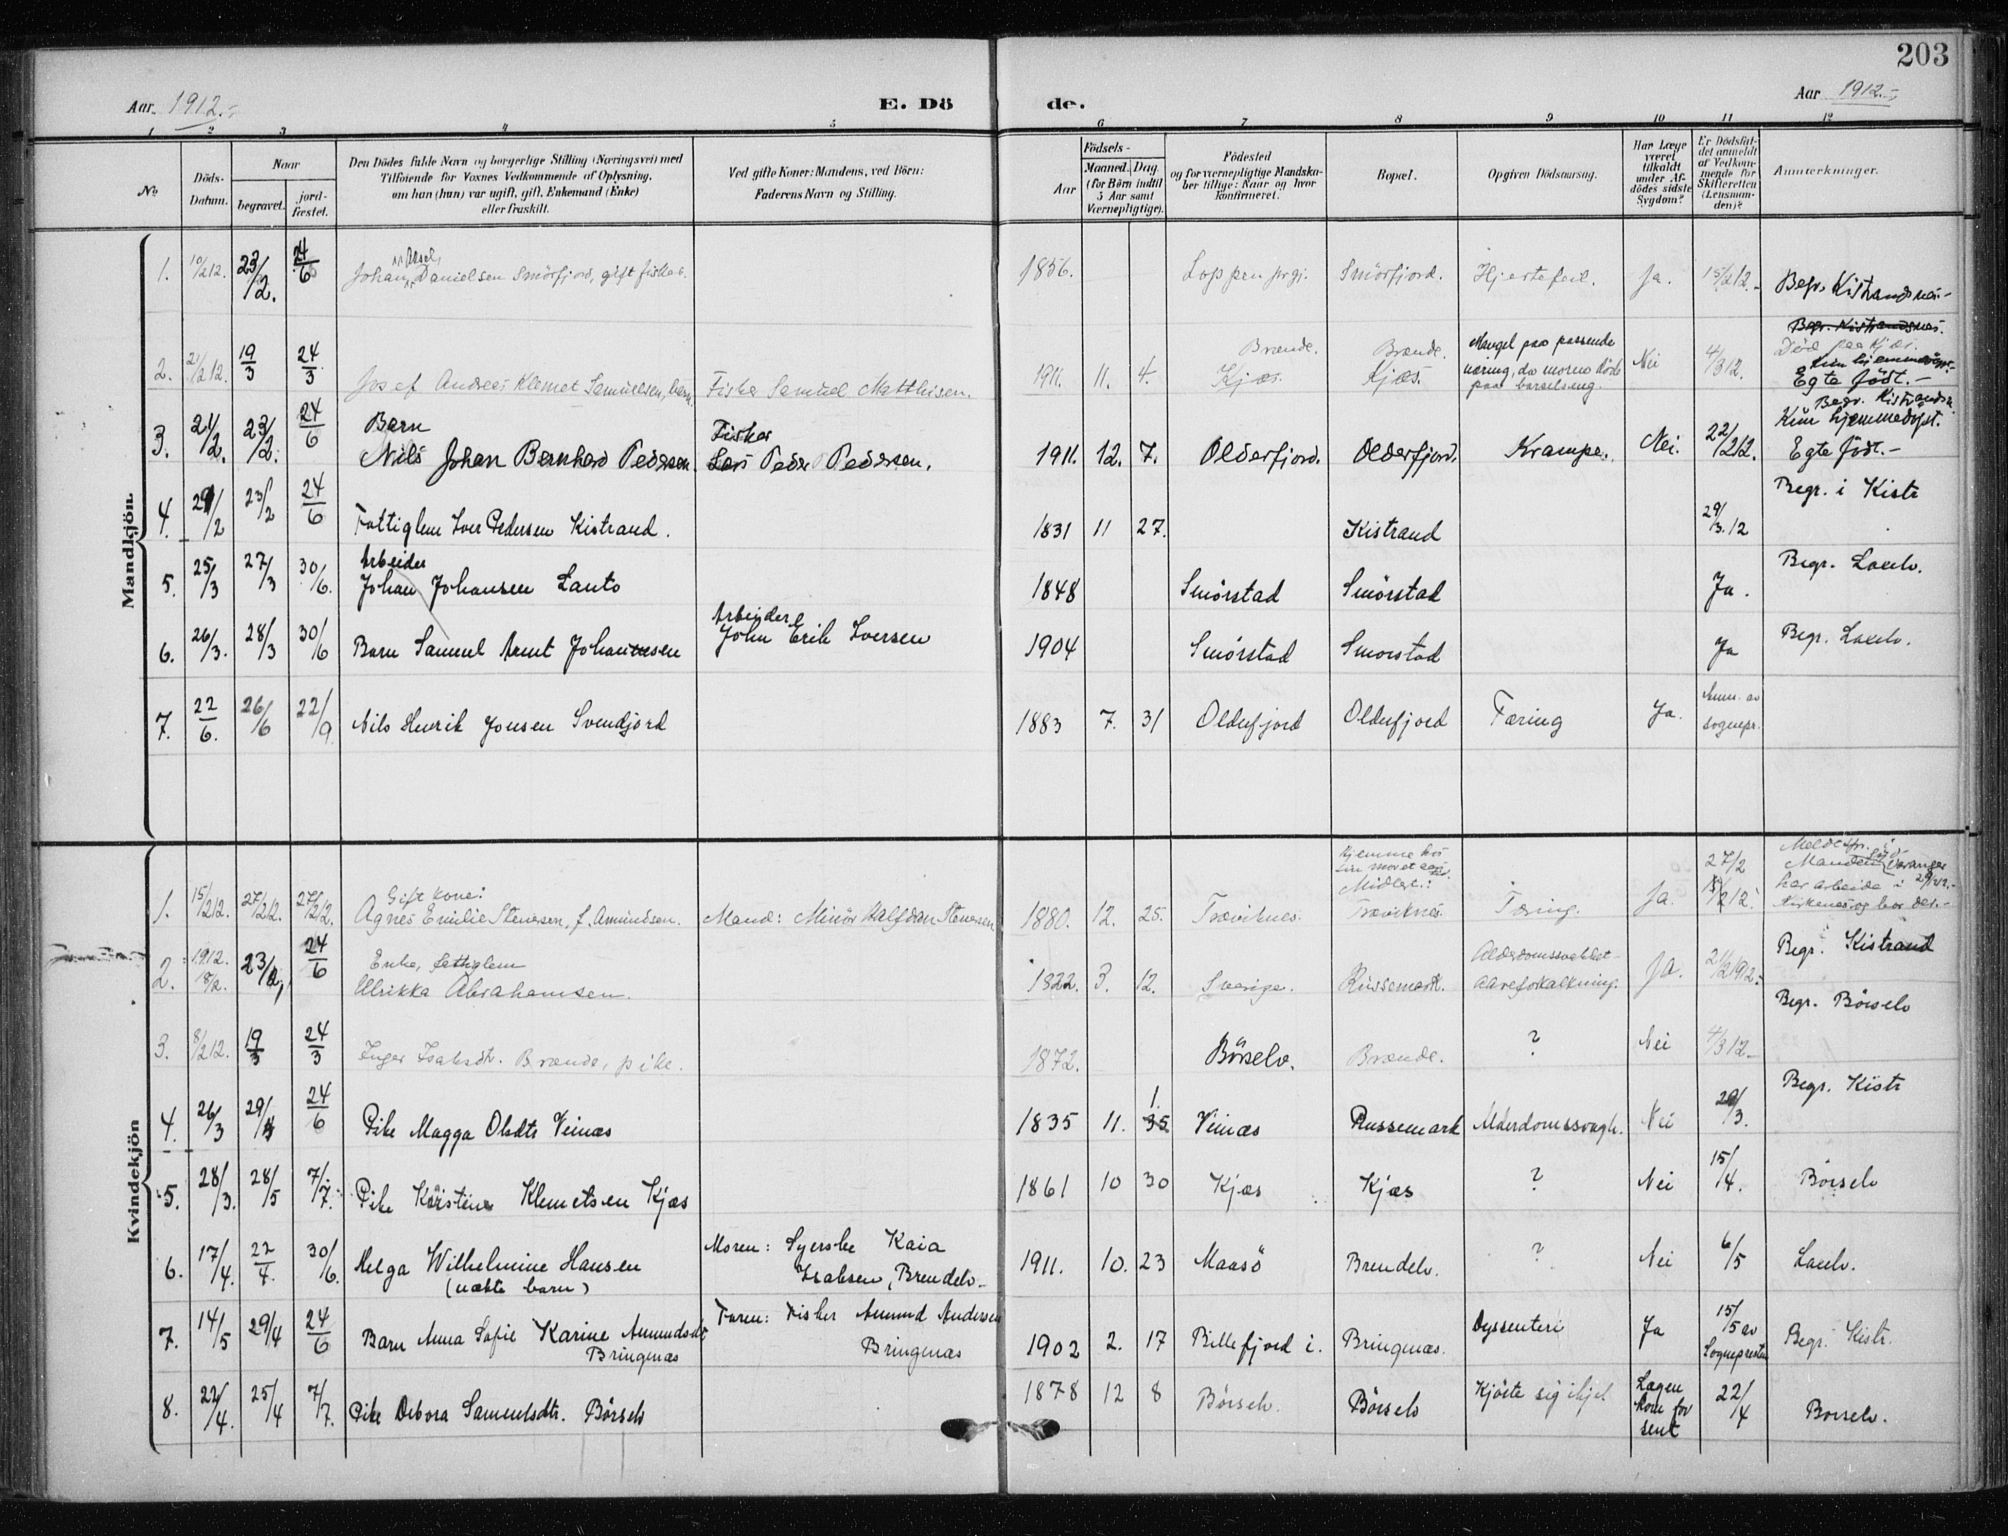 203
Aar 1912.-
E. Dö de.
Aar 1912.-
1 2 3 4 5 6 7 8 9 10 11 12
No
Döds-Datum.
Naar
begravet.
jord-fæstet.
Den Dödes fulde Navn og borgerlige Stilling (Næringsvei) med
Tilföiende for Voxnes Vedkommende af Oplysning,
om han (hun) var ugift, gift, Enkemand (Enke)
eller fraskilt.
Ved gifte Koner: Mandens, ved Börn:
Faderens Navn og Stilling.
Födsels-
Aar
Maaned. Dag.
(for Börn indtil
5 Aar samt
Værnepligtige).
Födested
og for værnepligtige Mandska-
ber tillige: Naar og hvor
konfirmeret.
Bopæl.
Opgiven Dödsaarsag.
Har Læge
været
tilkaldt
under Af-
dödes sidste
Sygdom?
Er Dödsfal-
det anmeldt
af Vedkom-
mende for
Skifteretten
(Lensman-
den)?
Anmærkninger.
Mandkjön.
1. 10/2 12. 23/2. 24/6 Johan Aksel Danielsen Smörfjord, gift fisker. 1856. Loppen prgj. Smörfjord. Hjertefeil. Ja. 15/2 12.- Begr. Kistrandsnes.-
2. 21/2 12. 19/3 24/3 Josef Andreas Klemet Samuelsen, barn. Fisker Samuel Matthisen. 1911. 11. 4. Kjæs. Brænde. Kjæs. Brænde. Mangel paa passende
næring, da moren döde
paa barselseng. Nei 4/3 12. Begr. Kistrandsnes.
Död paa Kjæs.
Kun hjemmedöpt.
Egte födt.-
3. 21/2. 23/2. 24/6 Barn
Nils Johan Bernhard Pedersen Fisker
Lars Peder Pedersen. 1911. 12. 7. Olderfjord. Olderfjord. Krampe. Nei. 22/2 12. Begr. Kistrands.
Kun hjemmedöpt.
Egte födt.-
4. 29/2 23/2 24/6 Fattiglem Iver Pedersen Kistrand. 1831 11 27. Kistrand 29/3. 12 Begr. i Kistr
5. 25/3 27/3 30/6. Arbeider
Johan Johansen Lanto 1848 Smörstad Smörstad Ja. Begr. Laxelv.
6. 26/3. 28/3 30/6 Barn Samuel Arnt Johannesen Arbeider
John Erik Iversen 1904 Smörstad Smorstad Ja Begr. Laxelv.
7. 22/6. 26/6 22/9. Nils Henrik Jonsen Svendjord 1883 7. 31 Olderfjord Olderfjord Tæring Ja. Anm. av
sognepr.
Kvindekjön
1. 15/2 12. 27/2 12. 27/2 12. Gift kone:
Agnes Emilie Stenersen, f. Amundsen. Mand: Minör Halfdan Stenersen 1880. 12. 25. Træviknes. Hjemme hos
sin mor
Midlert.:
Træviknes. Tæring. Ja. 27/2
15/2 12. Meldt spr. i
Manden Varanger
har arbeide i 29/2 12.-
Kirkenes og bor der.-
2. 1912.
18/2. 23/2, 24/6 Enke, fattiglem
Ulrikka Abrahamsen. 1822. 3. 12. Sverige. Russemark. Alderdomssvakhet-
Aareforkalkning. Ja. 21/2 1912. Begr. Kistrand
3. 8/2 12. 19/3 24/3 Inger Isaksdt. Brænde, pike. 1872. Börselv. Brænde. ? Nei 4/3 12.- Begr. Börselv
4. 26/3 29/4 24/6 Pike Magga Olsdtr Veinæs 1835 11. 1.
25 Veinæs Russemark Alderdomssvagh. Nei 29/3. Begr. Kistr
5. 28/3. 28/5 7/7. Pike Kirstine Klemetsen Kjæs 1861 10 30 Kjæs Kjæs ? Nei 15/4. Börselv
6. 17/4. 22/4. 30/6. Helga Wilhelmine Hansen
(uækte barn) Moren: Syerske Kaia
Isaksen, Brendelv- 1911. 10. 23 Maasö Brendelv. ? Nei 6/5 Laxelv.
7. 14/5 29/4 24/6 Barn Anna Sofie Karine Amundsdt
Bringnæs Faren: Fisker Amund Andersen
Bringnæs 1902 2. 17 Billefjord i. Bringnæs. Dyssenteri Ja 15/5 av
Sognepresten Begr. Kistr.
8. 22/4. 25/4 7/7. Pike Debora Samuelsdtr. Börselv 1878 12 8 Börselv. Börselv Kjöste sig ihjel. Lægen
kom for
sent 22/4 Borselv.